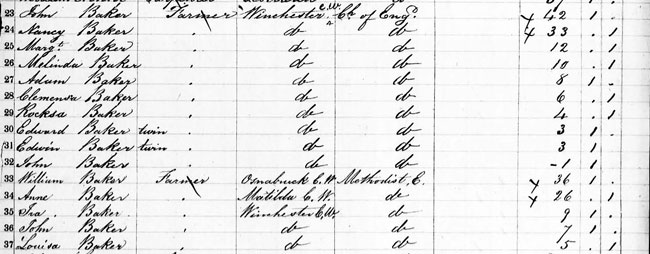 23 John Baker Farmer Winchester C.W. Ch of Engd. 42 1
24 Nancy Baker " do do 33 . 1
25 Margt. Baker " do do 12 . 1
26 Melinda Baker " do do 10 . 1
27 Adam Baker " do do 8 1 .
28 Clemensa Baker " do do 6 . 1
29 Rocksa Baker " do do 4 . 1
30 Edward Baker twin " do do 3 1 .
31 Edwin Baker twin " do do 3 1 .
32 John Baker " do do -1 1 .
33 William Baker Farmer Osnabruck C.W. Methodist, E. 36 1
34 Anne Baker " Matilda C.W. do 26 . 1
35 Ira Baker " Winchester C.W. do 9 1 .
36 John Baker " do do 7 1 .
37 Louisa Baker " do do 5 . 1